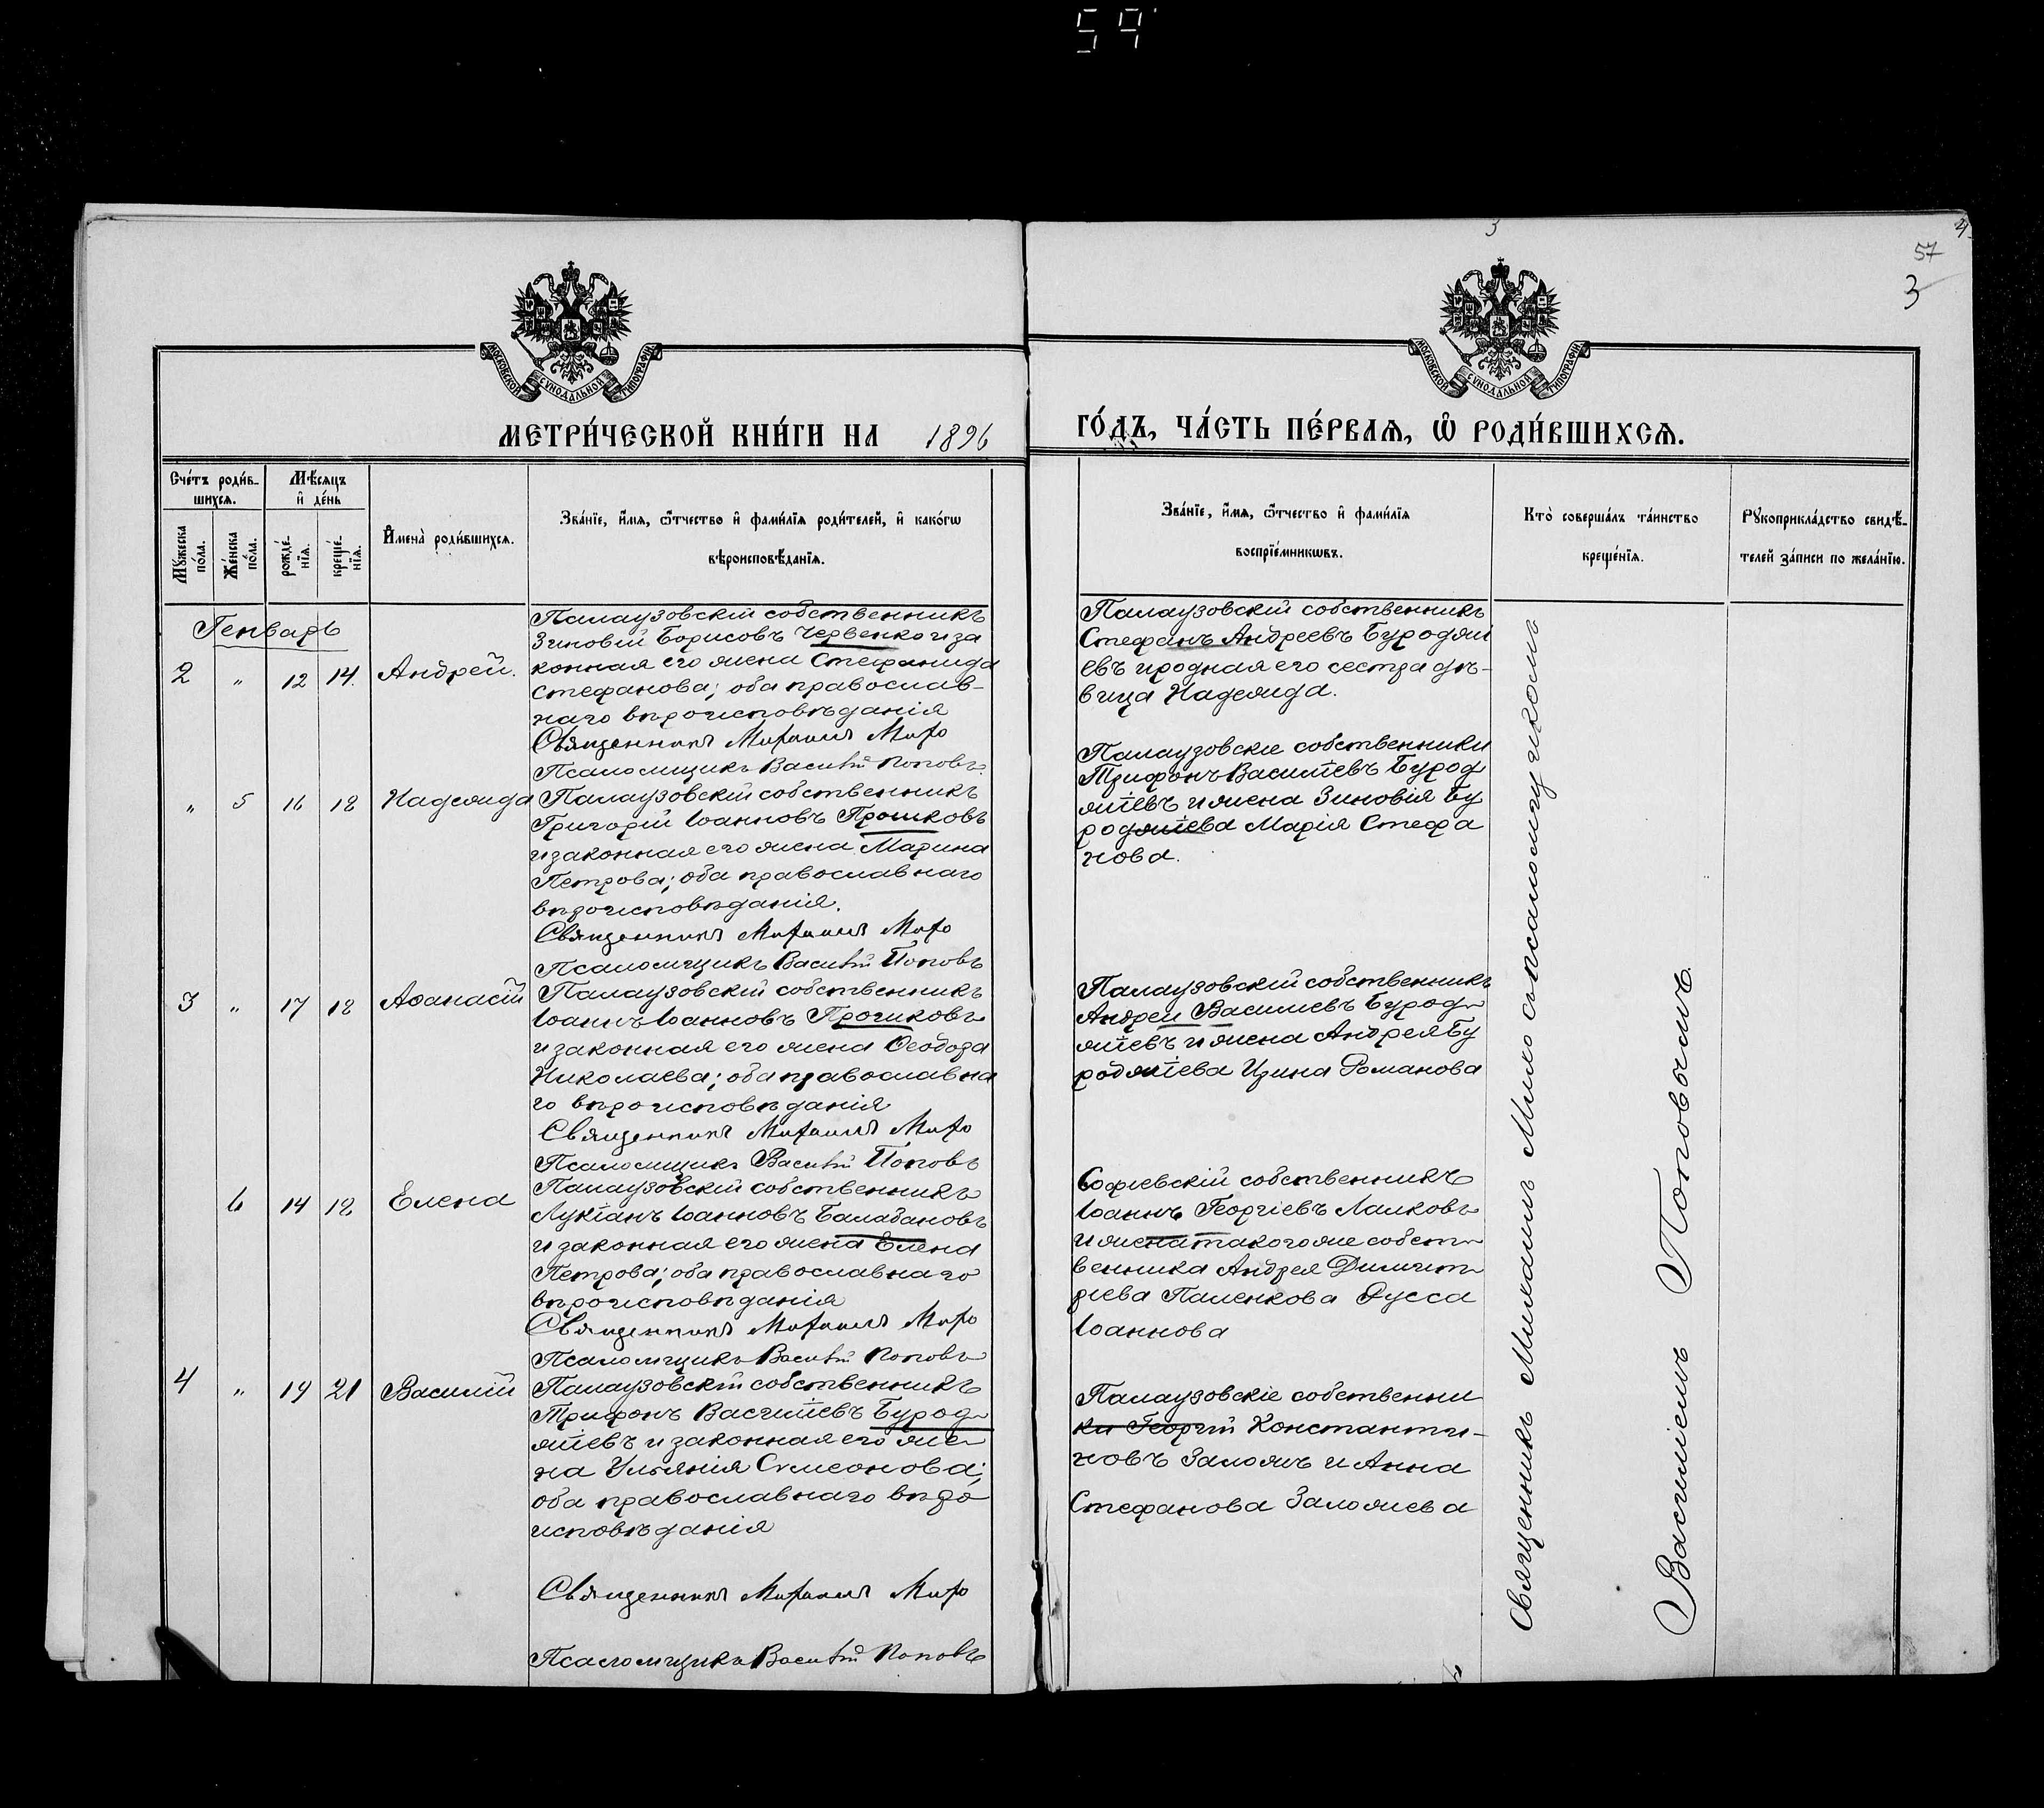 59
3
4
57
3
МОСКОВСКОЙ СѴНОДАЛЬНОЙ ТИПОГРАФІИ
МОСКОВСКОЙ СѴНОДАЛЬНОЙ ТИПОГРАФІИ
МЕТРИ́ЧЕСКОЙ КНИ́ГИ НА 1896
ГО́ДЪ, ЧА́СТЬ ПЕ́РВАѦ, Ѽ РОДИ́ВШИХСѦ.
Сче́тъ роди́в-
шихсѧ.
Мѣ́сѧцъ
и҆ де́нь
Мꙋ́жеска
по́ла.
Же́нска
по́ла.
рожде́-
нїѧ.
креще́-
нїѧ.
И҆мена̀ роди́вшихсѧ.
Зва́нїе, и҆́мѧ, ѻ҆́тчество и҆ фами́лїѧ роди́телей, и҆ како́гѡ
вѣроисповѣ́данїѧ.
Зва́нїе, и҆́мѧ, ѻ҆́тчество и҆ фами́лїѧ
воспрїе́мникѡвъ.
Кто̀ соверша́лъ та́инство
креще́нїѧ.
Рꙋкоприкла́дство свидѣ́-
телей за́писи по жела́нїю.
Генварь
2 „ 12 14. Андрей.
Палаузовскій собственникъ
Зиновій Борисовъ Червенко и за
конная его жена Стефанида
Стефанова; оба православ-
наго вѣроисповѣданія
Священникъ Михаилъ Михо
Псаломщикъ Василій Поповъ.
Палаузовскій собственникъ
Стефанъ Андреевъ Буроджі
евъ и родная его сестра дѣ-
вица Надежда.
„ 5 16 18 Надежда
Палаузовскій собственникъ
Григорій Іоанновъ Прошковъ
и законная его жена Марина
Петрова; оба православнаго
вѣроисповѣданія.
Священникъ Михаилъ Михо
Псаломщикъ Василій Поповъ
Палаузовскіе собственники
Трифонъ Василіевъ Бурод
жіевъ и жена Зиновія Бу
роджіева Марія Стефа
нова.
3 „ 17 18 Аѳанасій
Палаузовскій собственникъ
Іоаннъ Іоанновъ Прочиковъ
и законная его жена Ѳеодора
Николаева; оба православна
го вѣроисповѣданія
Священникъ Михаилъ Михо
Псаломщикъ Василій Поповъ
Палаузовскій собственникъ
Андрей Васильевъ Бурод
жіевъ и жена Андрея Бу
роджіева Ирина Романова
6 14 18 Елена
Палаузовскій собственникъ
Лукіанъ Іоанновъ Балабановъ
и законная его жена Елена
Петрова; оба православнаго
вѣроисповѣданія
Священникъ Михаилъ Михо
Псаломщикъ Василій Поповъ
Софіевскій собственникъ
Іоаннъ Георгіевъ Малковъ
и жена такого же собст
венника Андрея Димит
ріева Паленкова Русса
Іоаннова
4 „ 19 21 Василій
Палаузовскій собственникъ
Трифонъ Василіевъ Бурод
жіевъ и законная его же
на Ульянія Симеонова;
оба православнаго вѣро
исповѣданія
Священникъ Михаилъ Михо
Псаломщикъ Василій Поповъ
Палаузовскіе собственни
ки Георгій Константи-
новъ Заложъ и Анна
Стефанова Заложева
Священникъ Михаилъ Михо съ псаломщикомъ
Василіемъ Поповымъ.